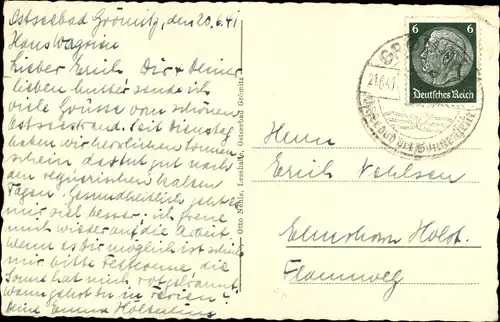 Ostseebad Grömitz, den 20.6.41
Haus Wagrien
Lieber Erich! Dir & deiner
lieben Mutter sende ich
viele Grüsse vom schönen
Ostseestrand. Seit Dienstag
haben wir herrlichen Sonnen-
schein das tut gut nach
den regnerischen kalten
Tagen. Gesundheitlich geht es
mir viel besser, ich freue
mich wieder auf die Arbeit
wenn es dir möglich ist schicke
mir bitte Feltesonne, die
Sonne hat mich rotgebrannt
wann gehst du in Ferien?
Deine Emma
Otto Nehls, Lesehalle, Ostseebad Grömitz
6 6
Deutsches Reich
21.6.41
Herrn
Erich Vehlsen
Elmshorn Holst.
Flamweg